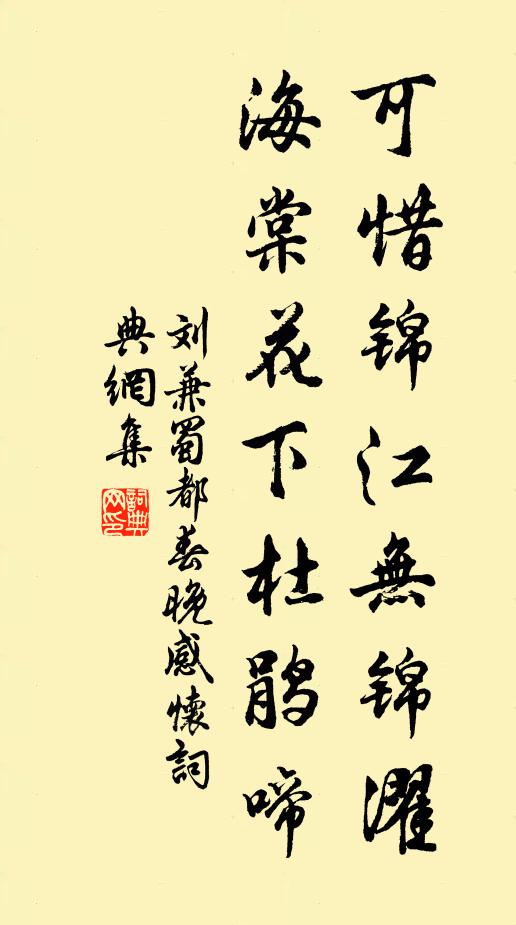 可惜锦江無锦濯
海棠花下杜鹃啼
刘兼蜀都春晚感懷詞
典網集
詞典
网印